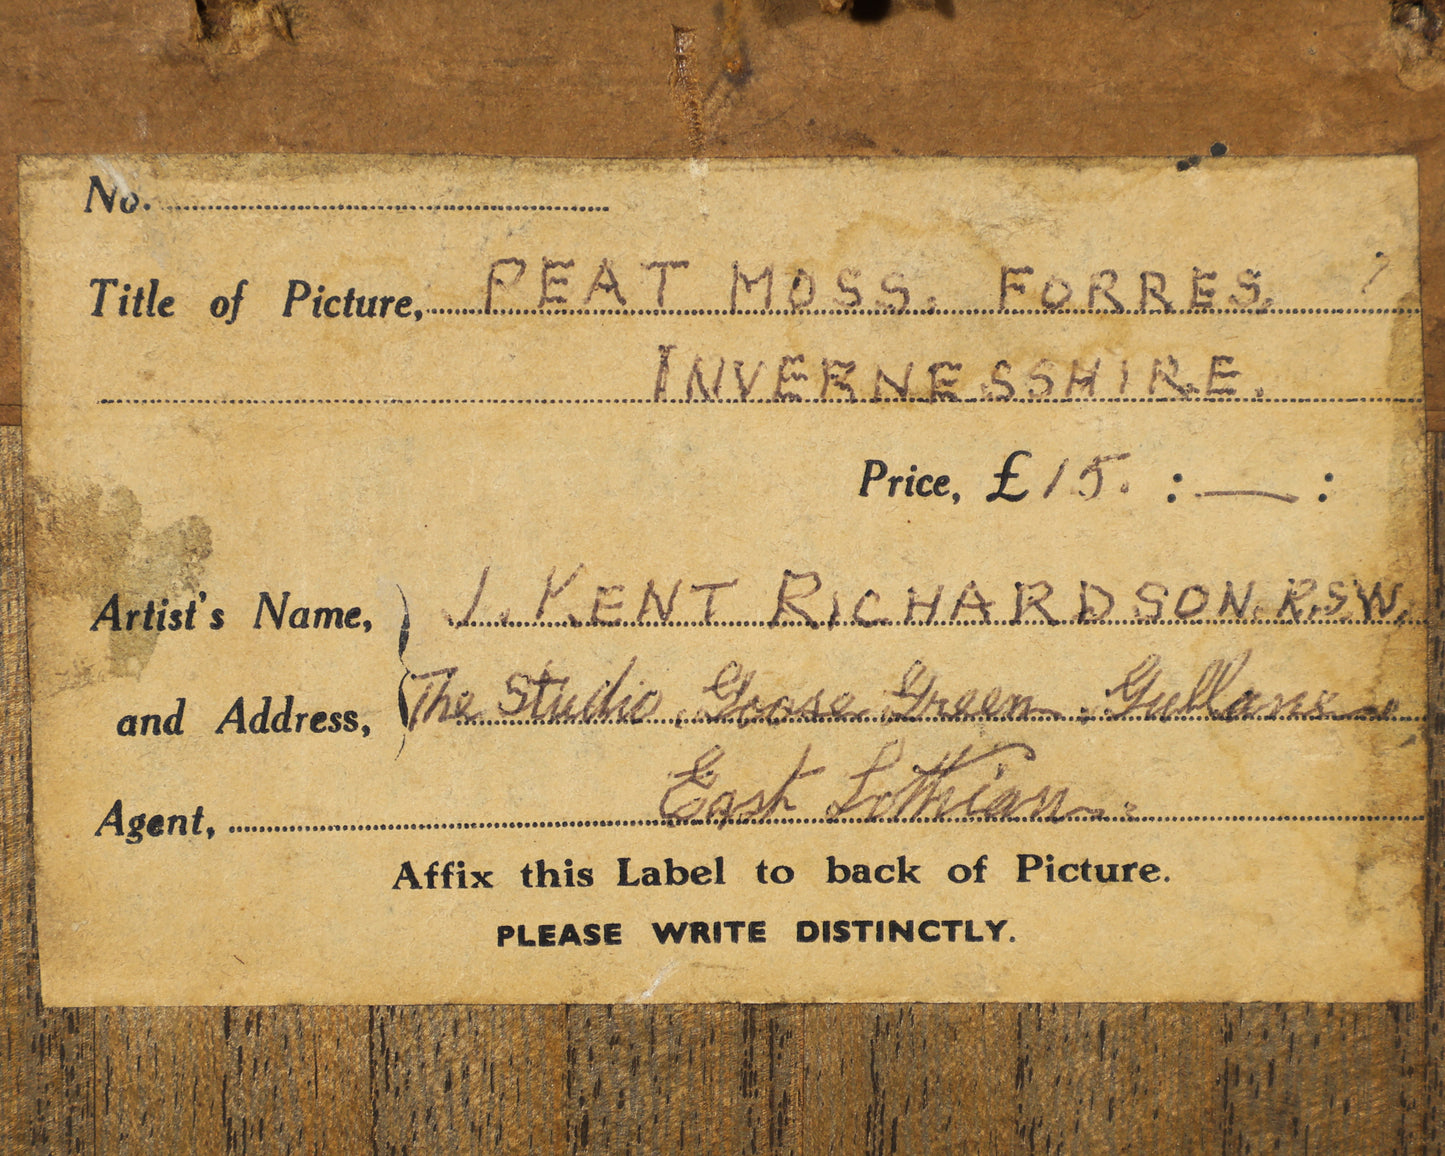 No.
Title of Picture, PEAT MOSS. FORRES. ?
INVERNESSHIRE.
Price, £15. : — :
Artist's Name, J. KENT RICHARDSON. R.S.W,
and Address, The Studio, Goose Green, Gullane,
East Lothian.
Agent,
Affix this Label to back of Picture.
PLEASE WRITE DISTINCTLY.